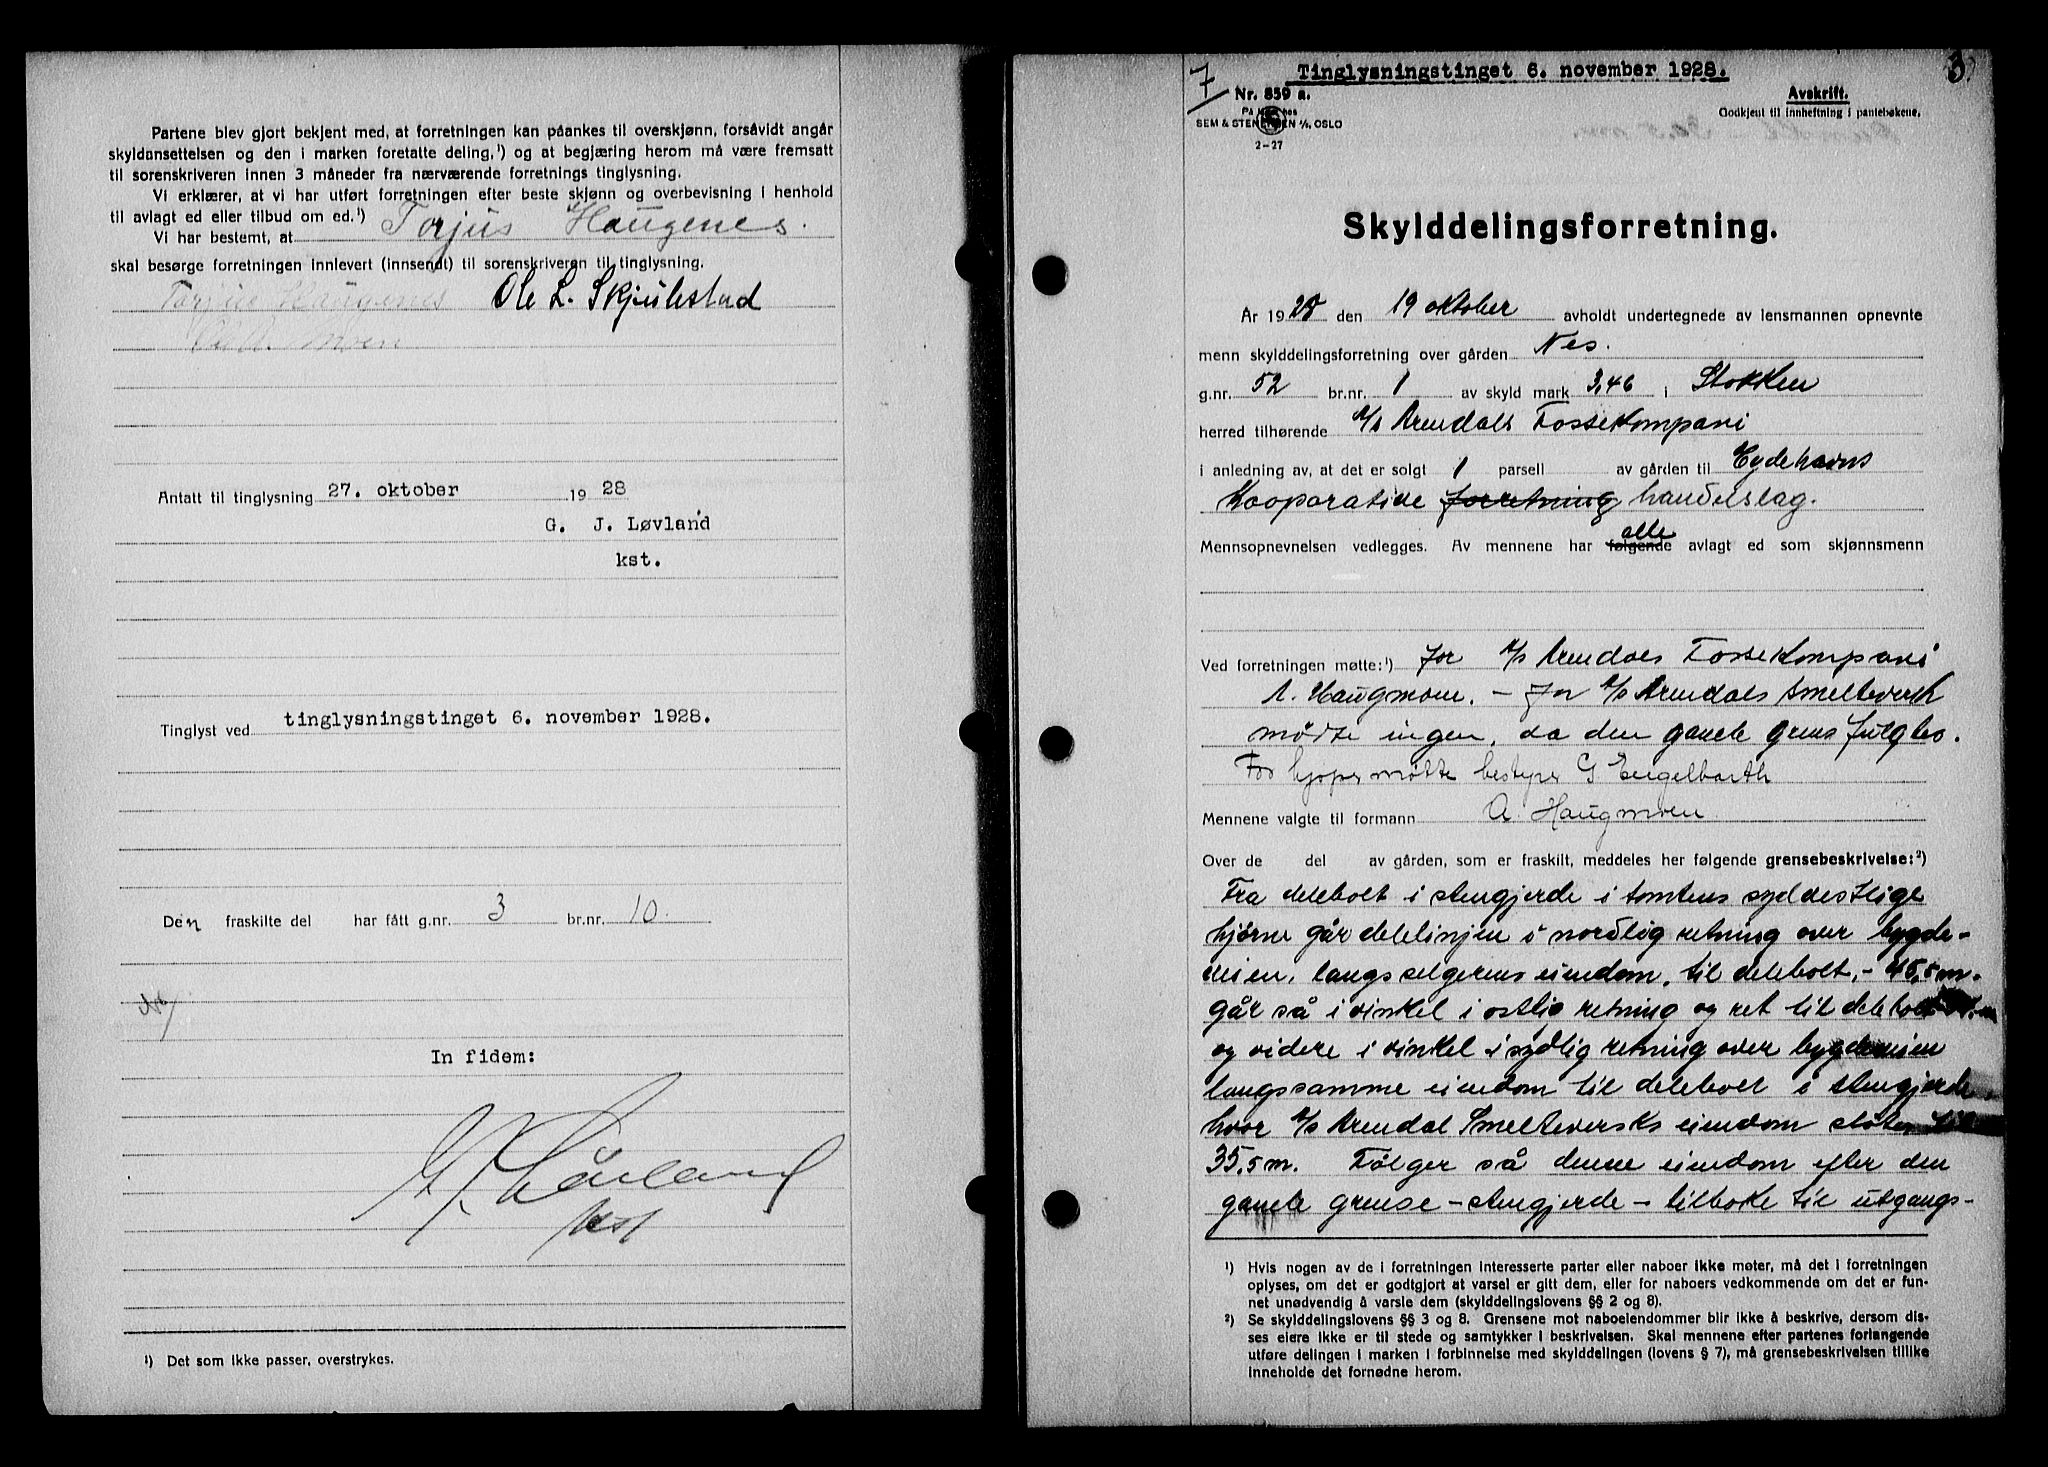 Partene blev gjort bekjent med, at forretningen kan påankes til overskjønn, forsåvidt angår
skyldansettelsen og den i marken foretatte deling,¹) og at begjæring herom må være fremsatt
til sorenskriveren innen 3 måneder fra nærværende forretnings tinglysning.
Vi erklærer, at vi har utført forretningen efter beste skjønn og overbevisning i henhold
til avlagt ed eller tilbud om ed.¹)
Vi har bestemt, at Torjus Haugenes.
skal besørge forretningen innlevert (innsendt) til sorenskriveren til tinglysning.
Torjus Haugenes Ole L. Skjulestad
Moen
Antatt til tinglysning 27. oktober 19 28
G. J. Løvland
kst.
Tinglyst ved tinglysningstinget 6. november 1928.
Den fraskilte del har fått g.nr. 3 br.nr. 10.
In fidem:
G J Løvland
kst
¹) Det som ikke passer, overstrykes.
7 Tinglysningstinget 6. november 1928. 3.
Nr. 859 a.
SEM & STENERSEN A/S, OSLO
2-27
Avskrift.
Godkjent til innheftning i pantebøkene.
Skylddelingsforretning.
År 1928 den 19 oktober avholdt undertegnede av lensmannen opnevnte
menn skylddelingsforretning over gården Nes.
g.nr. 52 br.nr. 1 av skyld mark 3,46 i Stokken
herred tilhørende A/s Arendals Fossekompani
i anledning av, at det er solgt 1 parsell av gården til Eydehavns
Kooporative forretning handelslag.
alle
Mennsopnevnelsen vedlegges. Av mennene har følgende avlagt ed som skjønnsmenn
Ved forretningen møtte:¹) for A/s Arendals Fossekompani
A. Haugmoen. - for A/s Arendals Smelteverk
mødte ingen, da den gamle grens fulgtes.
For kjøper møtte bestyrer G Engelbarth
Mennene valgte til formann A. Haugmoen
Over de del av gården, som er fraskilt, meddeles her følgende grensebeskrivelse:²)
Fra delebolt i stengjerde i tomtens syddestlige
hjørne går delelinjen i nordlig retning over bygde-
veien, langs selgerens eiendom, til delebolt, - 45,5 m.
går så i vinkel i ostlig retning og ret til delebolt
og videre i vinkel i sydlig retning over bygdeveien
langs samme eiendom til delebolt i stengjerde,
hvor A/s Arendal Smelteverks eiendom støter til
35,5 m. Følger så denne eiendom efter den
gamle grense - stengjerde - tilbake til utgangs-
¹) Hvis nogen av de i forretningen interesserte parter eller naboer ikke møter, må det i forretningen
oplyses, om det er godtgjort at varsel er gitt dem, eller for naboers vedkommende om det er fun-
net unødvendig å varsle dem (skylddelingslovens §§ 2 og 8).
²) Se skylddelingslovens §§ 3 og 8. Grensene mot naboeiendommer blir ikke å beskrive, dersom dis-
ses eiere ikke er til stede og samtykker i beskrivelsen. Skal mennene efter partenes forlangende
utføre delingen i marken i forbinnelse med skylddelingen (lovens § 7), må grensebeskrivelsen tillike
inneholde det fornødne herom.